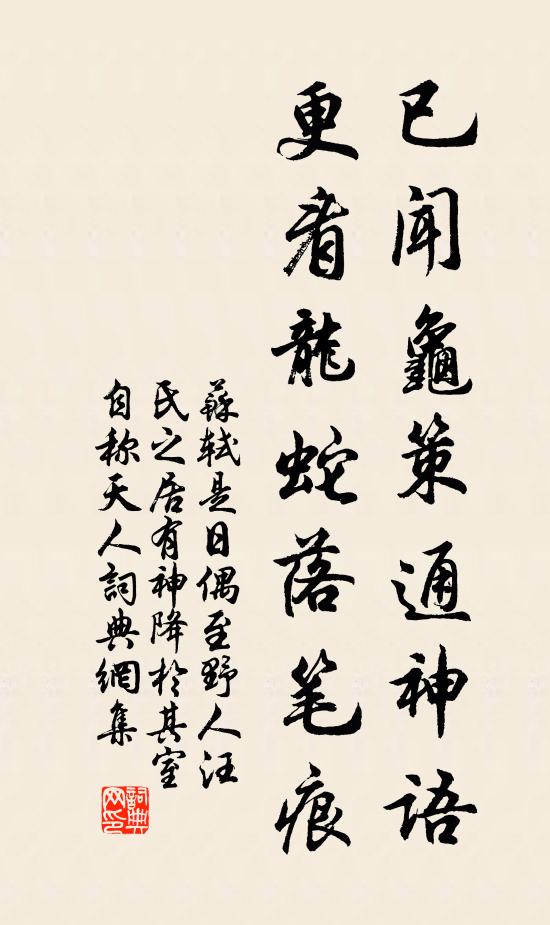 已聞龜策通神語
更看龍蛇落笔痕
蘇軾是日偶至野人汪
氏之居有神降於其室
自称天人詞典網集
詞典网印